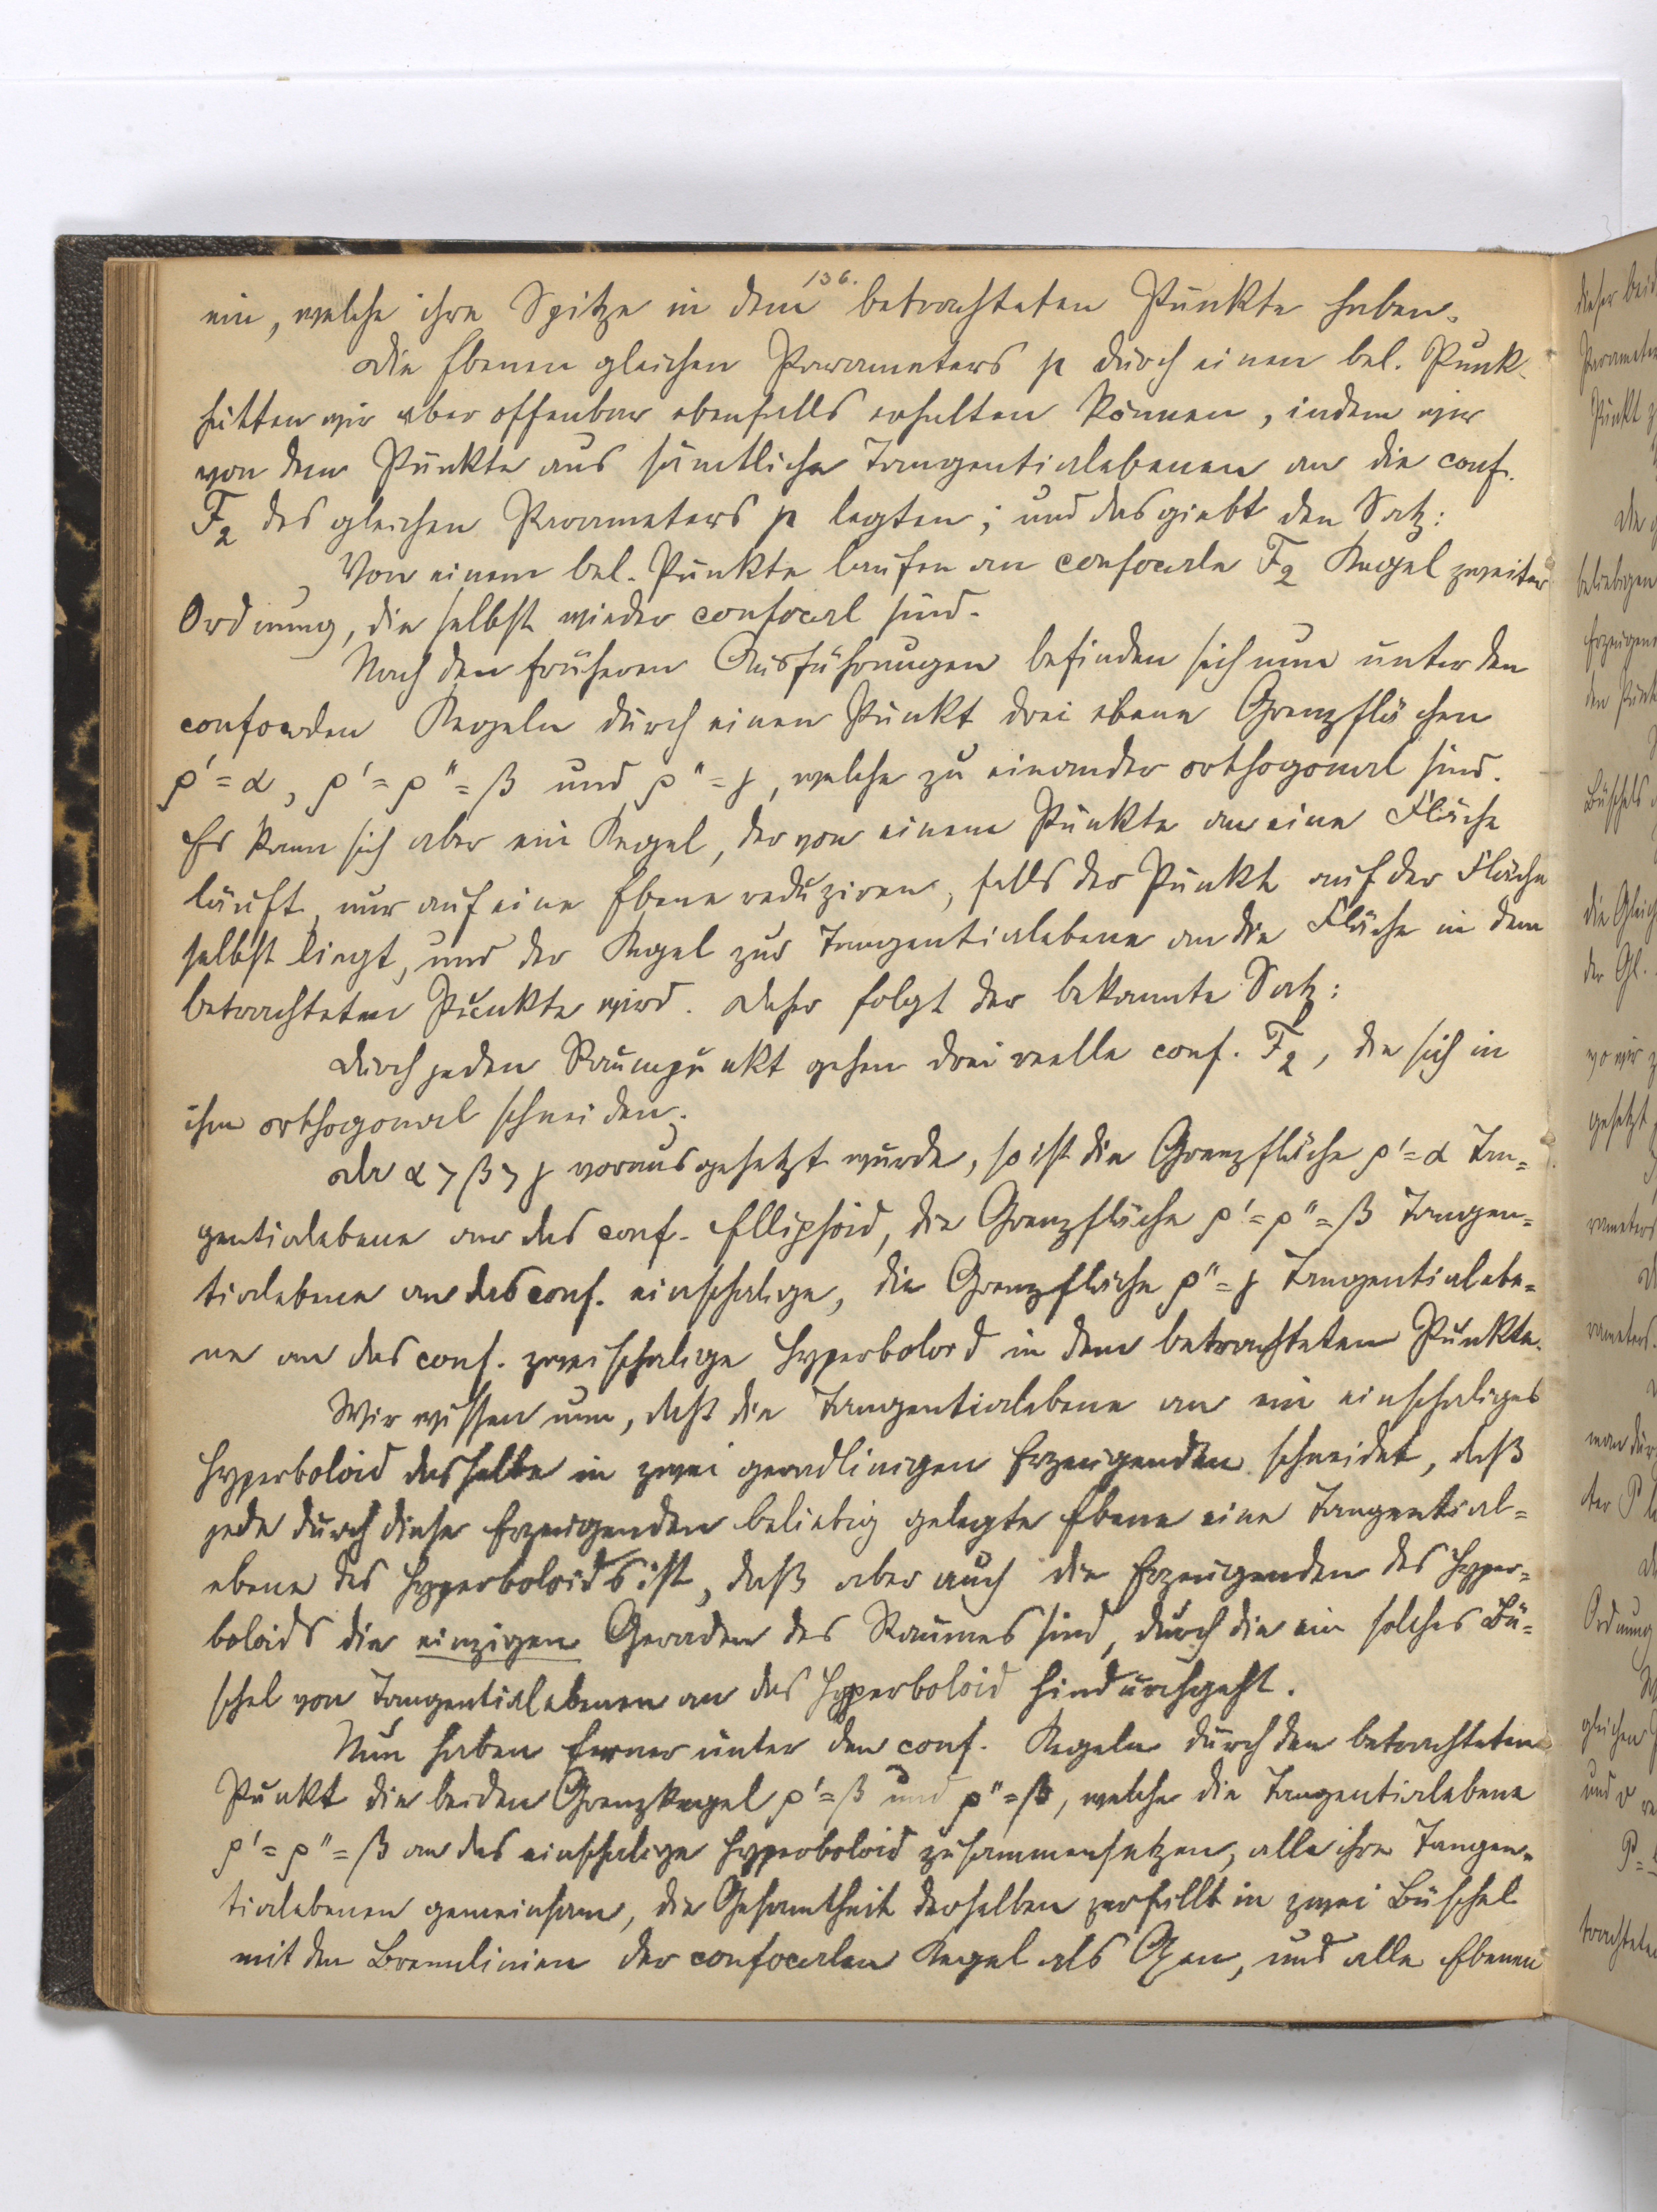 136.
ein, welche ihre Spitze in dem betrachteten Punkte haben.
Die Ebenen gleichen Parameters p durch einen bel. Punk-
hätten wir aber offenbar ebenfalls erhalten können, indem wir
von dem Punkte aus sämtliche Tangentialebenen an die conf.
F₂ des gleichen Parameters p legten; und das giebt den Satz:
Von einem bel. Punkte laufen an confocale F₂ Kegel zweiter
Ordnung, die selbst wieder confocal sind.
Nach den früheren Ausführungen befinden sich nun unter den
confocalen Kegeln durch einen Punkt drei ebene Grenzflächen
ρ' = α, ρ' = ρ'' = β und ρ'' = γ, welche zu einander orthogonal sind.
Es kann sich aber ein Kegel, der von einem Punkte an eine Fläche
läuft, nur auf eine Ebene reduziren, falls der Punkt auf der Fläche
selbst liegt, und der Kegel zur Tangentialebene an die Fläche in dem
betrachteten Punkte wird. Daher folgt der bekannte Satz:
Durch jeden Raumpunkt gehen drei reelle conf. F₂, die sich in
ihm orthogonal schneiden.
Da α > β > γ vorausgesetzt wurde, so ist die Grenzfläche ρ' = α Tan=
gentialebene an das conf. Ellipsoid, die Grenzfläche ρ' = ρ'' = β Tangen=
tialebene an das conf. einschalige, die Grenzfläche ρ'' = γ Tangentialebe=
ne an das conf. zweischalige Hyperboloid in dem betrachteten Punkte.
Wir wissen nun, daß die Tangentialebene an ein einschaliges
Hyperboloid dasselbe in zwei geradlinigen Erzeugenden schneidet, daß
jede durch diese Erzeugenden beliebig gelegte Ebene eine Tangential=
ebene des Hyperboloids ist, daß aber auch die Erzeugenden des Hyper=
boloids die einzigen Geraden des Raumes sind, durch die ein solches Bü=
schel von Tangentialebenen an das Hyperboloid hindurchgeht.
Nun haben ferner unter den conf. Kegeln durch den betrachteten
Punkt die beiden Grenzkegel ρ' = β und ρ'' = β, welche die Tangentialebene
ρ' = ρ'' = β an das einschalige Hyperboloid zusammensetzen, alle ihre Tangen=
tialebenen gemeinsam, die Gesamtheit derselben zerfällt in zwei Büschel
mit den Brennlinien der confocalen Kegel als Axen, und alle Ebenen